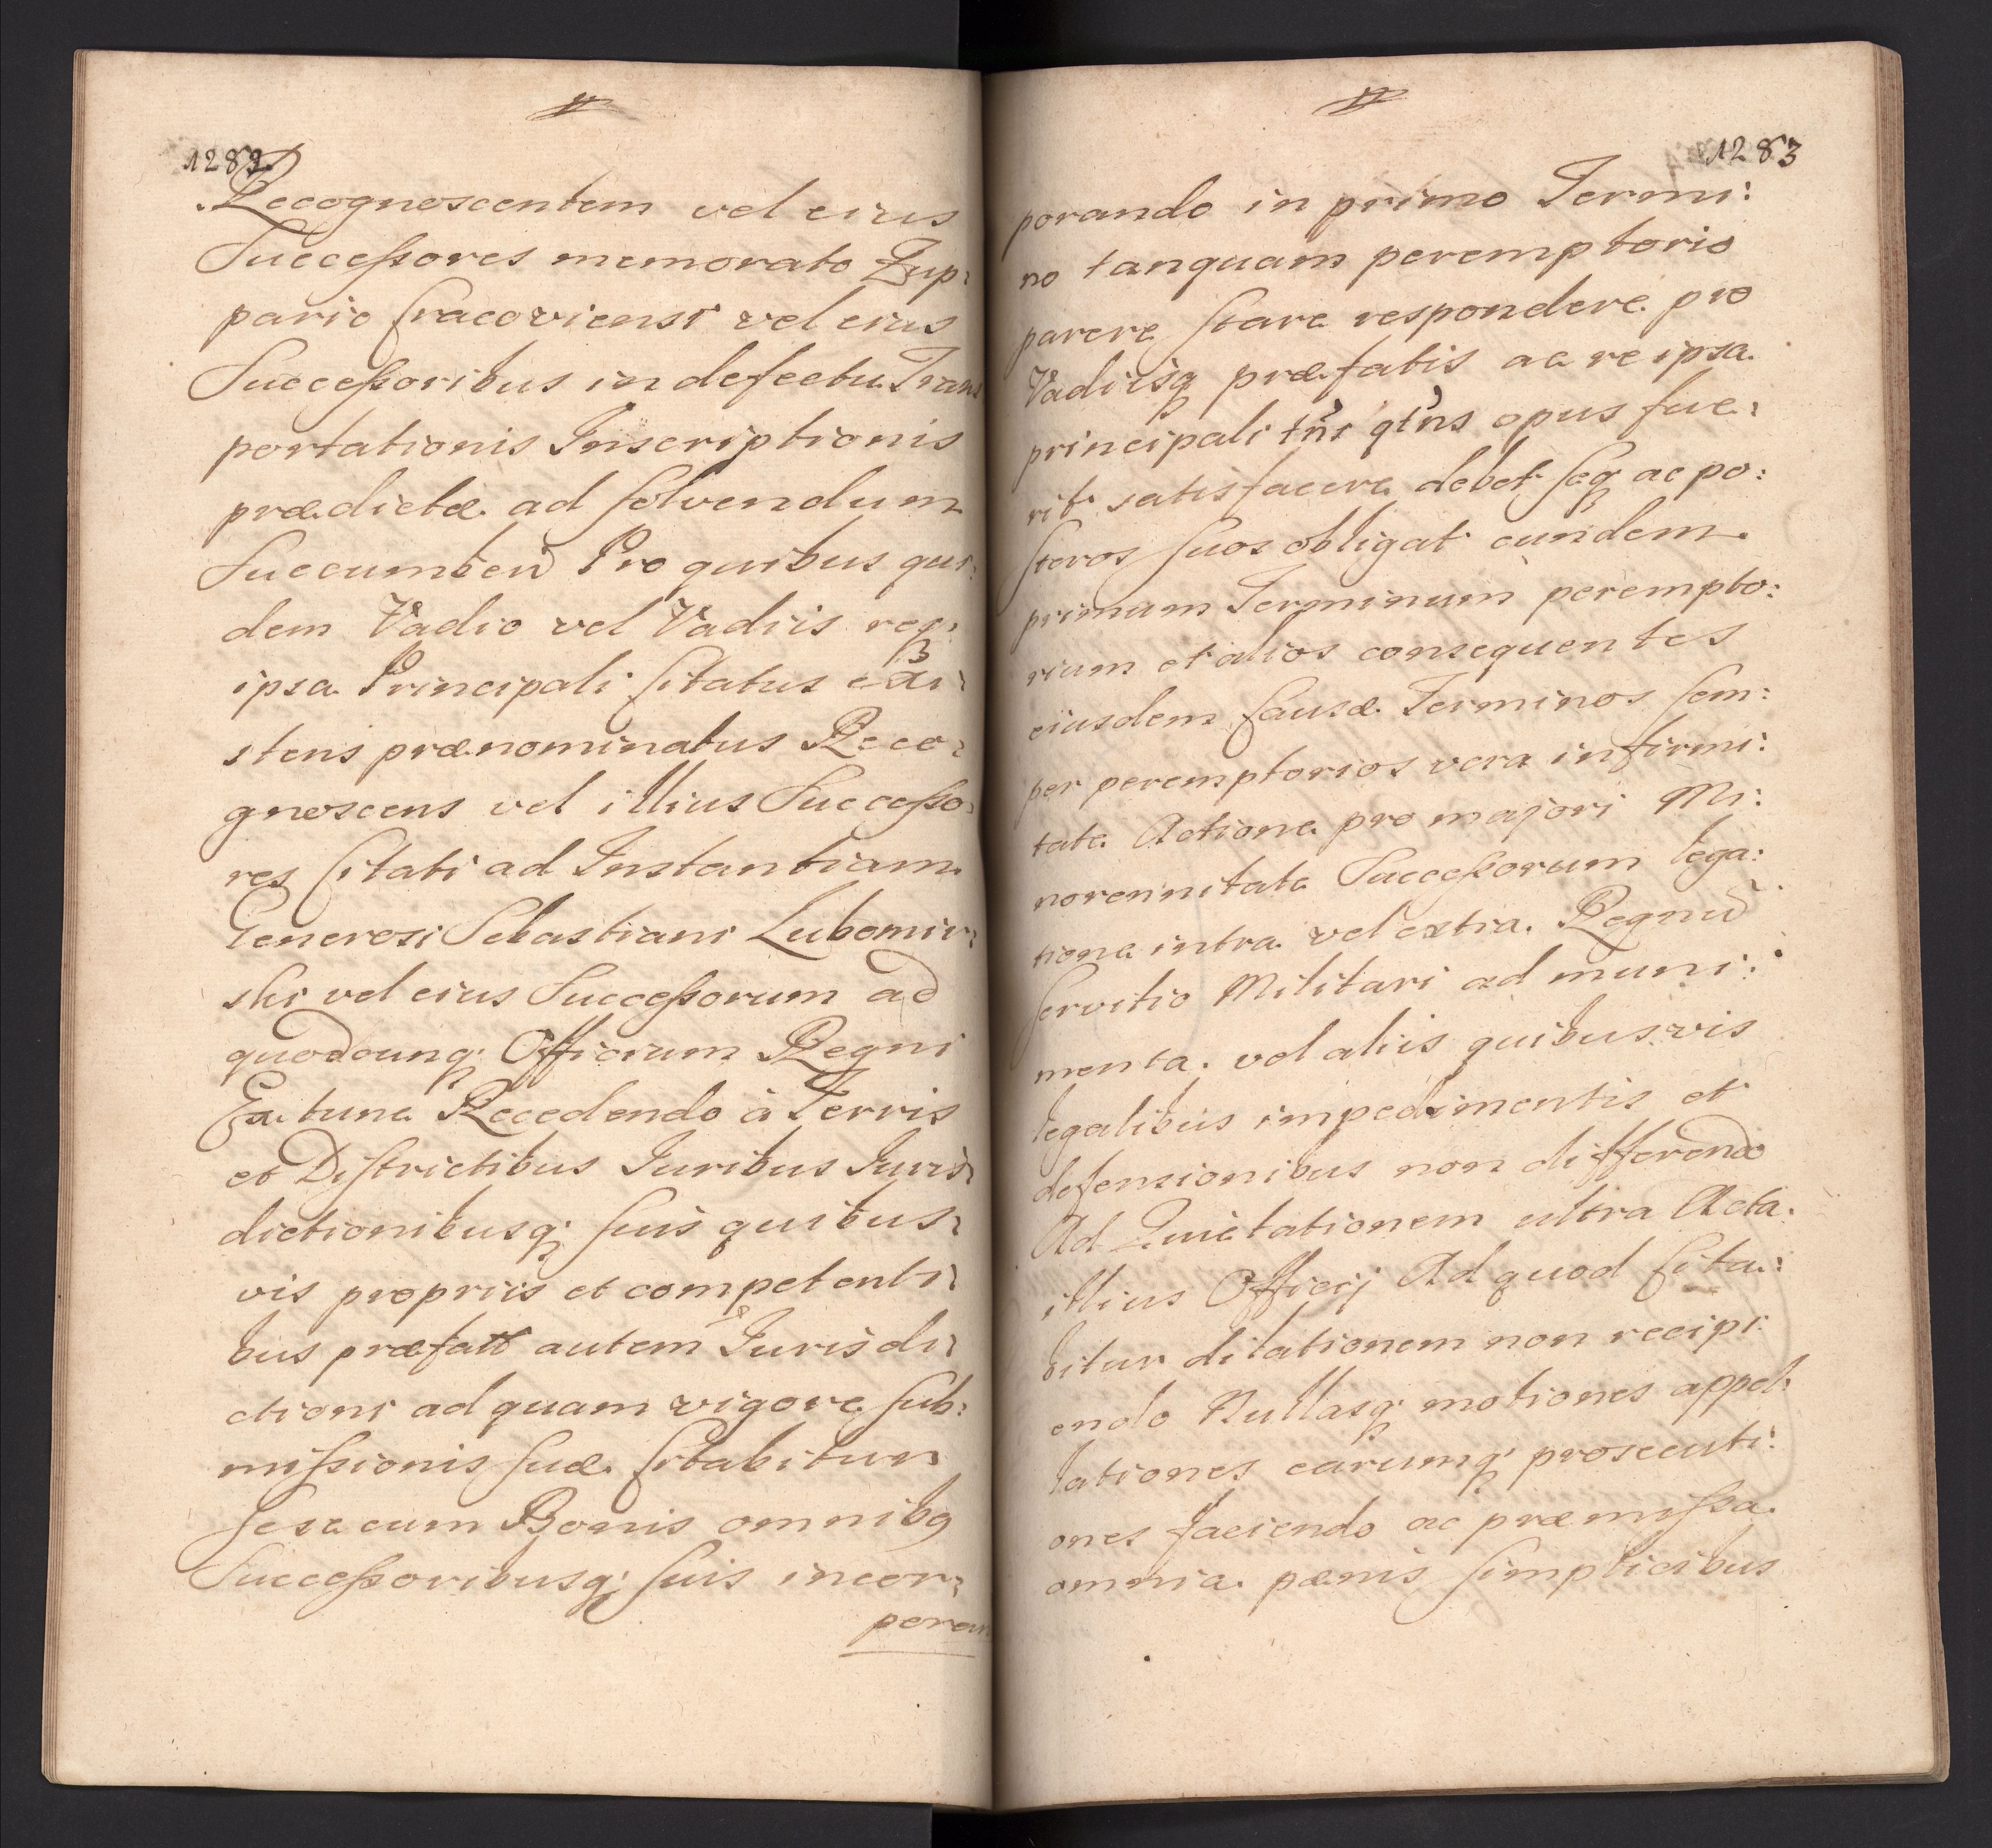 1282
Recognoscentem vel eius
Successores memorato Zup:
pario Cracoviensi vel eius
Successoribus in defectu Trans
portationis Inscriptionis
prædictæ ad solvendum
Succumben Pro quibus qui:
dem Vadio vel Vadiis req:
ipsa Principali Citatus exi:
stens prænominatus Reco:
gnoscens vel illius Successo:
res Citati ad Instantiam
Generosi Sebastiani Lubomir:
ski vel eius Successorum ad
quodcunq; Officium Regni
Ex tunc Recedendo à Terris
et Districtibus Iuribus Iuris:
dictionibusq; suis quibus:
vis propriis et competenti:
bus præfatt autem Iurisdi:
ctioni ad quam vigore sub:
missionis suæ Citabitur
sese cum Bonis omnibq
Successoribusq; suis incor:
poran
1283
porando in primo Termi:
no tanquam peremptorio
parere stare respondere pro
Vadiisq præfatis ac re ipsa
principali tñi qtñs opus fue:
rit satisfacere debet seq ac po:
steros suos obligat eundem
primum Terminum perempto:
rium et alios consequentes
eiusdem Causæ Terminos sem:
per peremptorios vera infirmi:
tate Actione pro majori Mi:
norennitate Successorum lega:
tione intra vel extra Regnu
servitio Militari ad muni:
menta vel aliis quibusvis
legalibus impedimentis et
defensionibus non differendo
Ad Quietationem ultra Acta
illius Officij Ad quod Cita:
bitur dilationem non recipi:
endo Nullasq; motiones appel:
lationes earumq; prosecuti:
ones faciendo ac præmissa
omnia pænis simplicibus